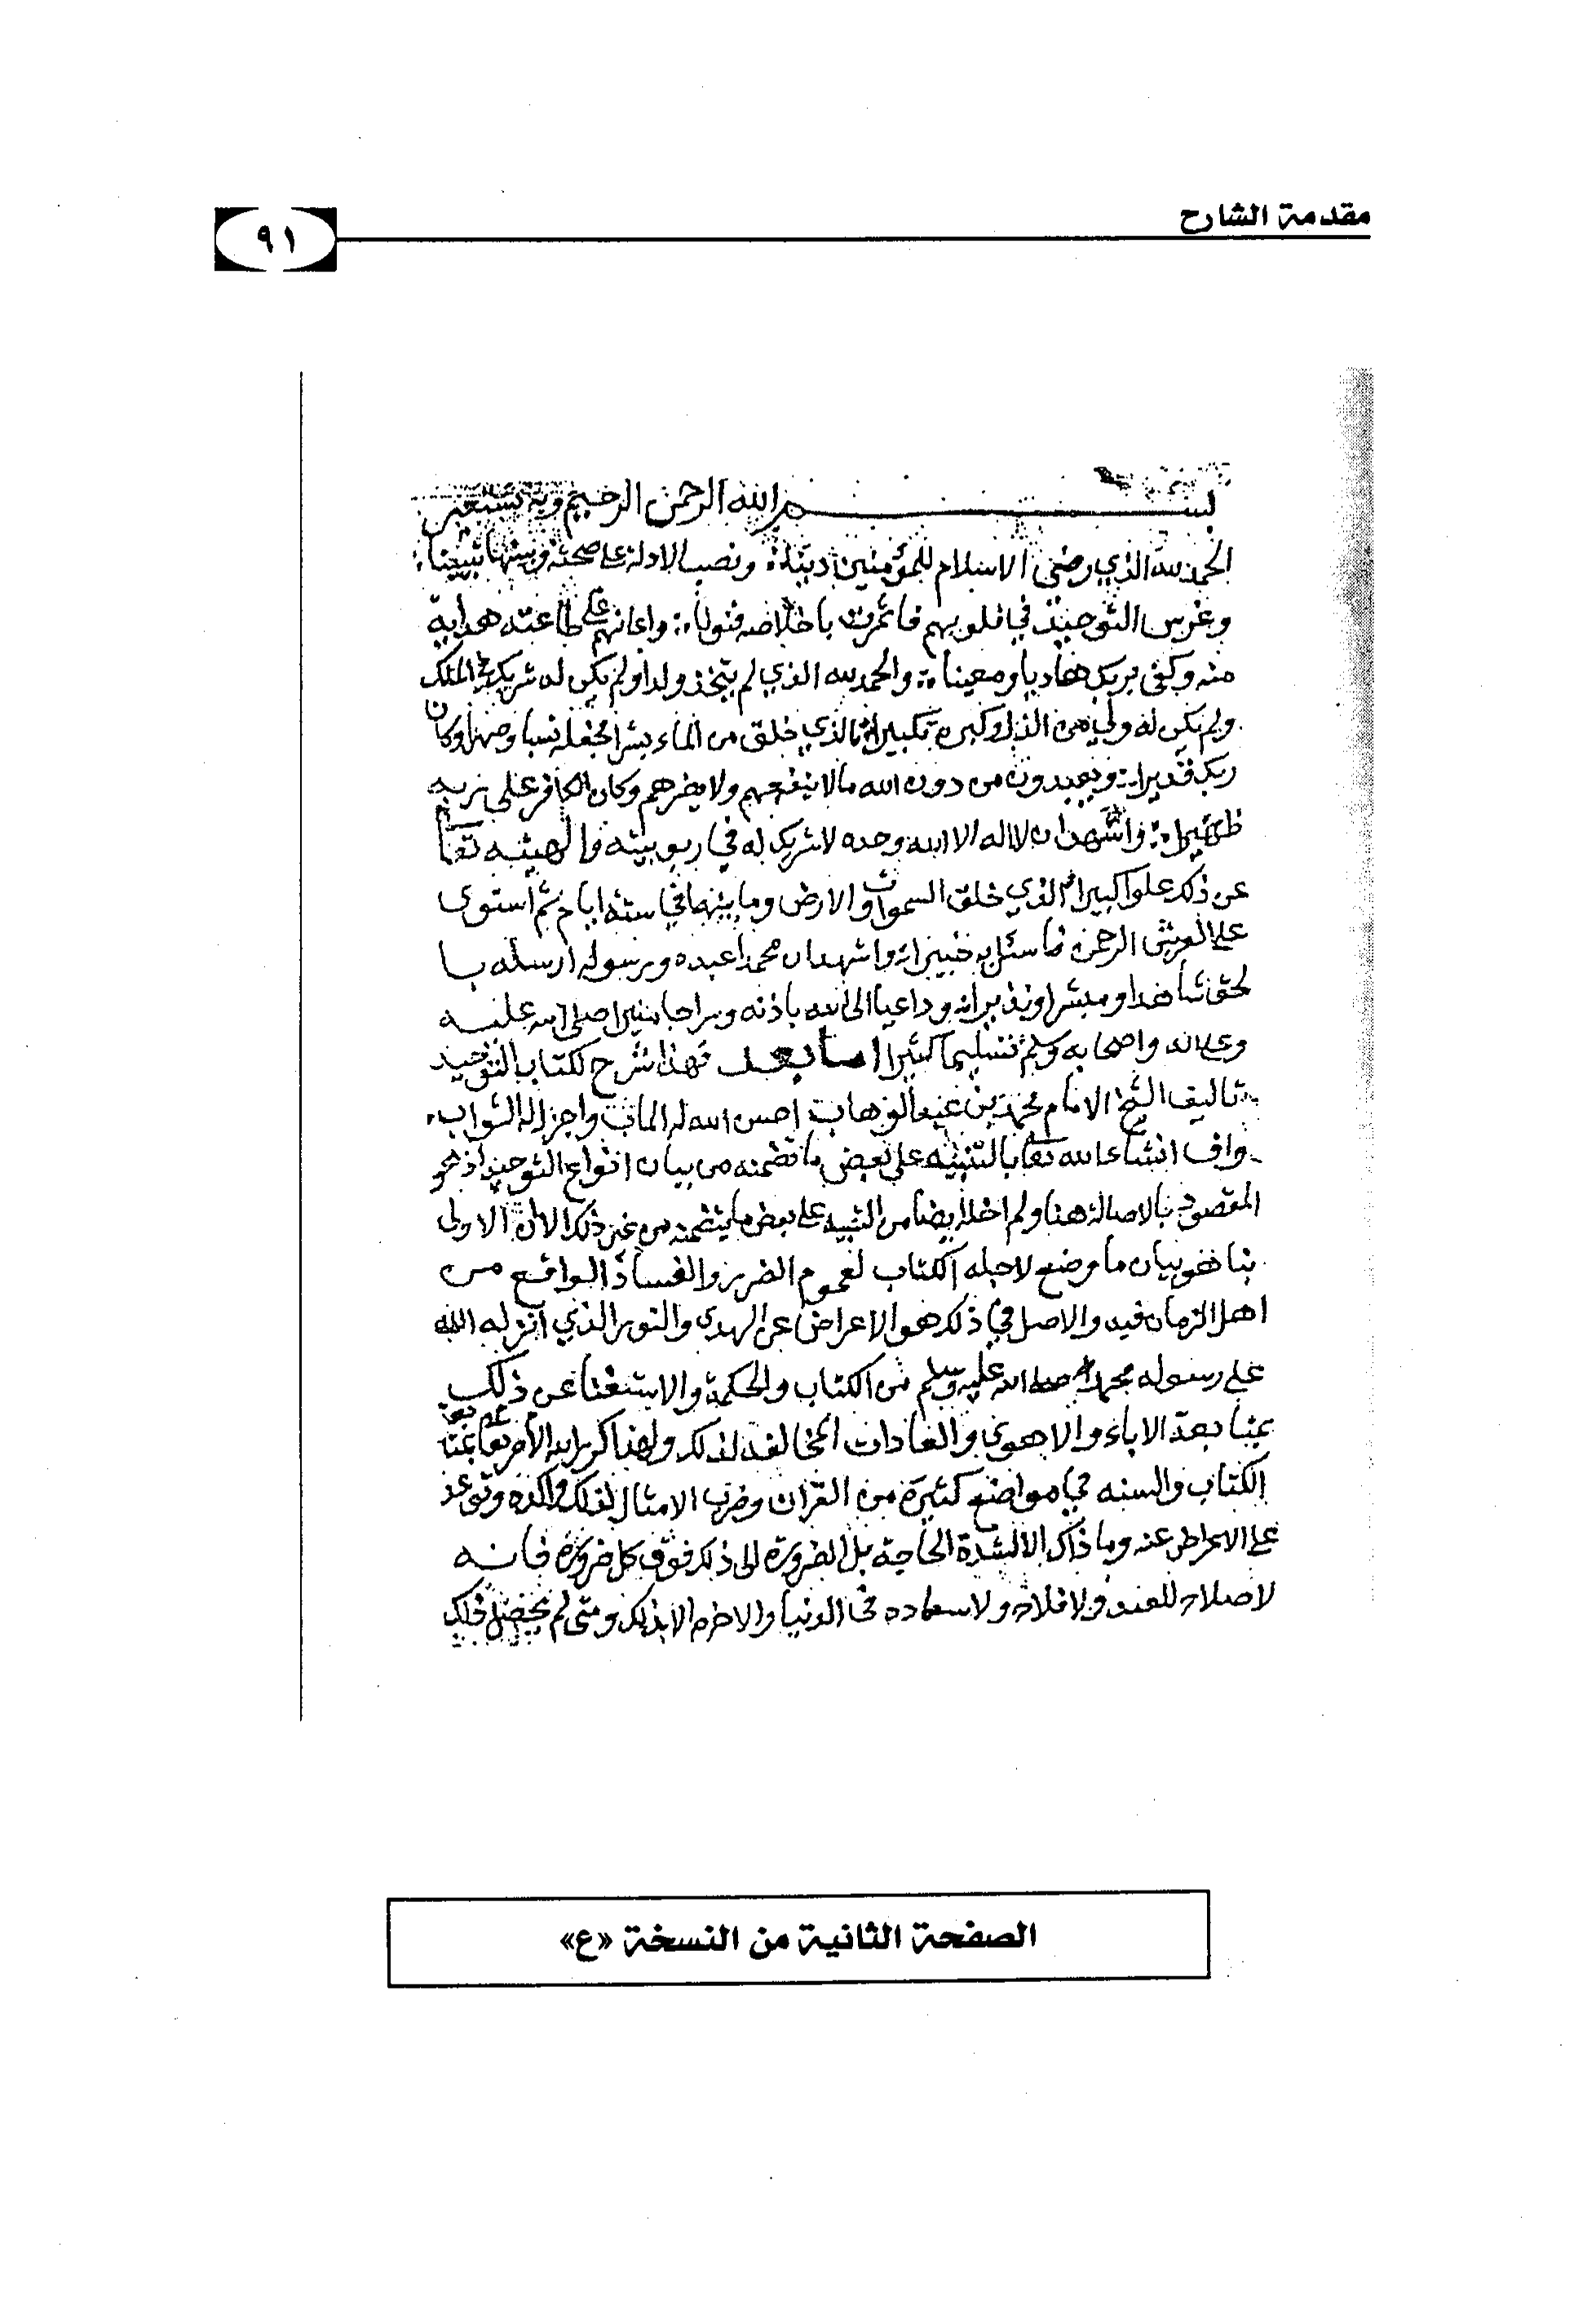 مقدمة الشارح
٩١
بســـم الله الرحمن الرحيم وبه نستعين
الحمد لله الذي رضي الاسلام للمؤمنين دينا ونصب الادلة على صحته وبينها تبيينا
وغرس التوحيد في قلوبهم فاثمرت باخلاصه فنونا واعانهم على طاعته هداية
منه وكفى بربك هاديا ومعينا والحمد لله الذي لم يتخذ ولدا ولم يكن له شريك في الملك
ولم يكن له ولي من الذل وكبره تكبيرا الذي خلق من الماء بشرا فجعله نسبا وصهرا وكان
ربك قديرا ويعبدون من دون الله مالا ينفعهم ولا يضرهم وكان الكافر على ربه
ظهيرا واشهد ان لا اله الا الله وحده لا شريك له في ربوبيته والهيته تعالى
عن ذلك علوا كبيرا الذي خلق السموات والارض وما بينهما في ستة ايام ثم استوى
على العرش الرحمن فاسئل به خبيرا واشهد ان محمدا عبده ورسوله ارسله با
لحق شاهدا ومبشرا ونذيرا وداعيا الى الله باذنه وسراجا منيرا صلى الله عليه
وعلى اله واصحابه وسلم تسليما كثيرا اما بعد فهذا شرح لكتاب التوحيد
تاليف الشيخ الامام محمد بن عبد الوهاب احسن الله له الماب واجزل له الثواب
واف انشاء الله تعا بالتنبيه على بعض ما تضمنه من بيان انواع التوحيد اذ هو
المقصود بالاصالة هنا ولم اخله ايضا من التنبيه على بعض ما يتضمنه من غير ذلك الا ان الاولى
بنا هو بيان ما وضع لاجله الكتاب لعموم الضرر والفساد الواقع من
اهل الزمان فيه والاصل في ذلك هو الاعراض عن الهدى والنور الذي انزله الله
على رسوله محمد صلى الله عليه وسلم من الكتاب والحكمة والاستغنا عن ذلك
بمتابعة الاباء والاهوى والعادات المخالفة لذلك ولهذا كرر الله الأمر بمتا
الكتاب والسنه في مواضع كثيرة من القران وضرب الامثال لذلك واكده وتوعد
على الاعراض عنه وما ذاك الا لشدة الحاجة بل الضرورة الى ذلك فوق كل ضرورة فانه
لا صلاح للعبد ولا فلاح ولا سعاده في الدنيا والاخره الا بذلك ومتى لم يحصل ذلك
الصفحة الثانية من النسخة «ع»